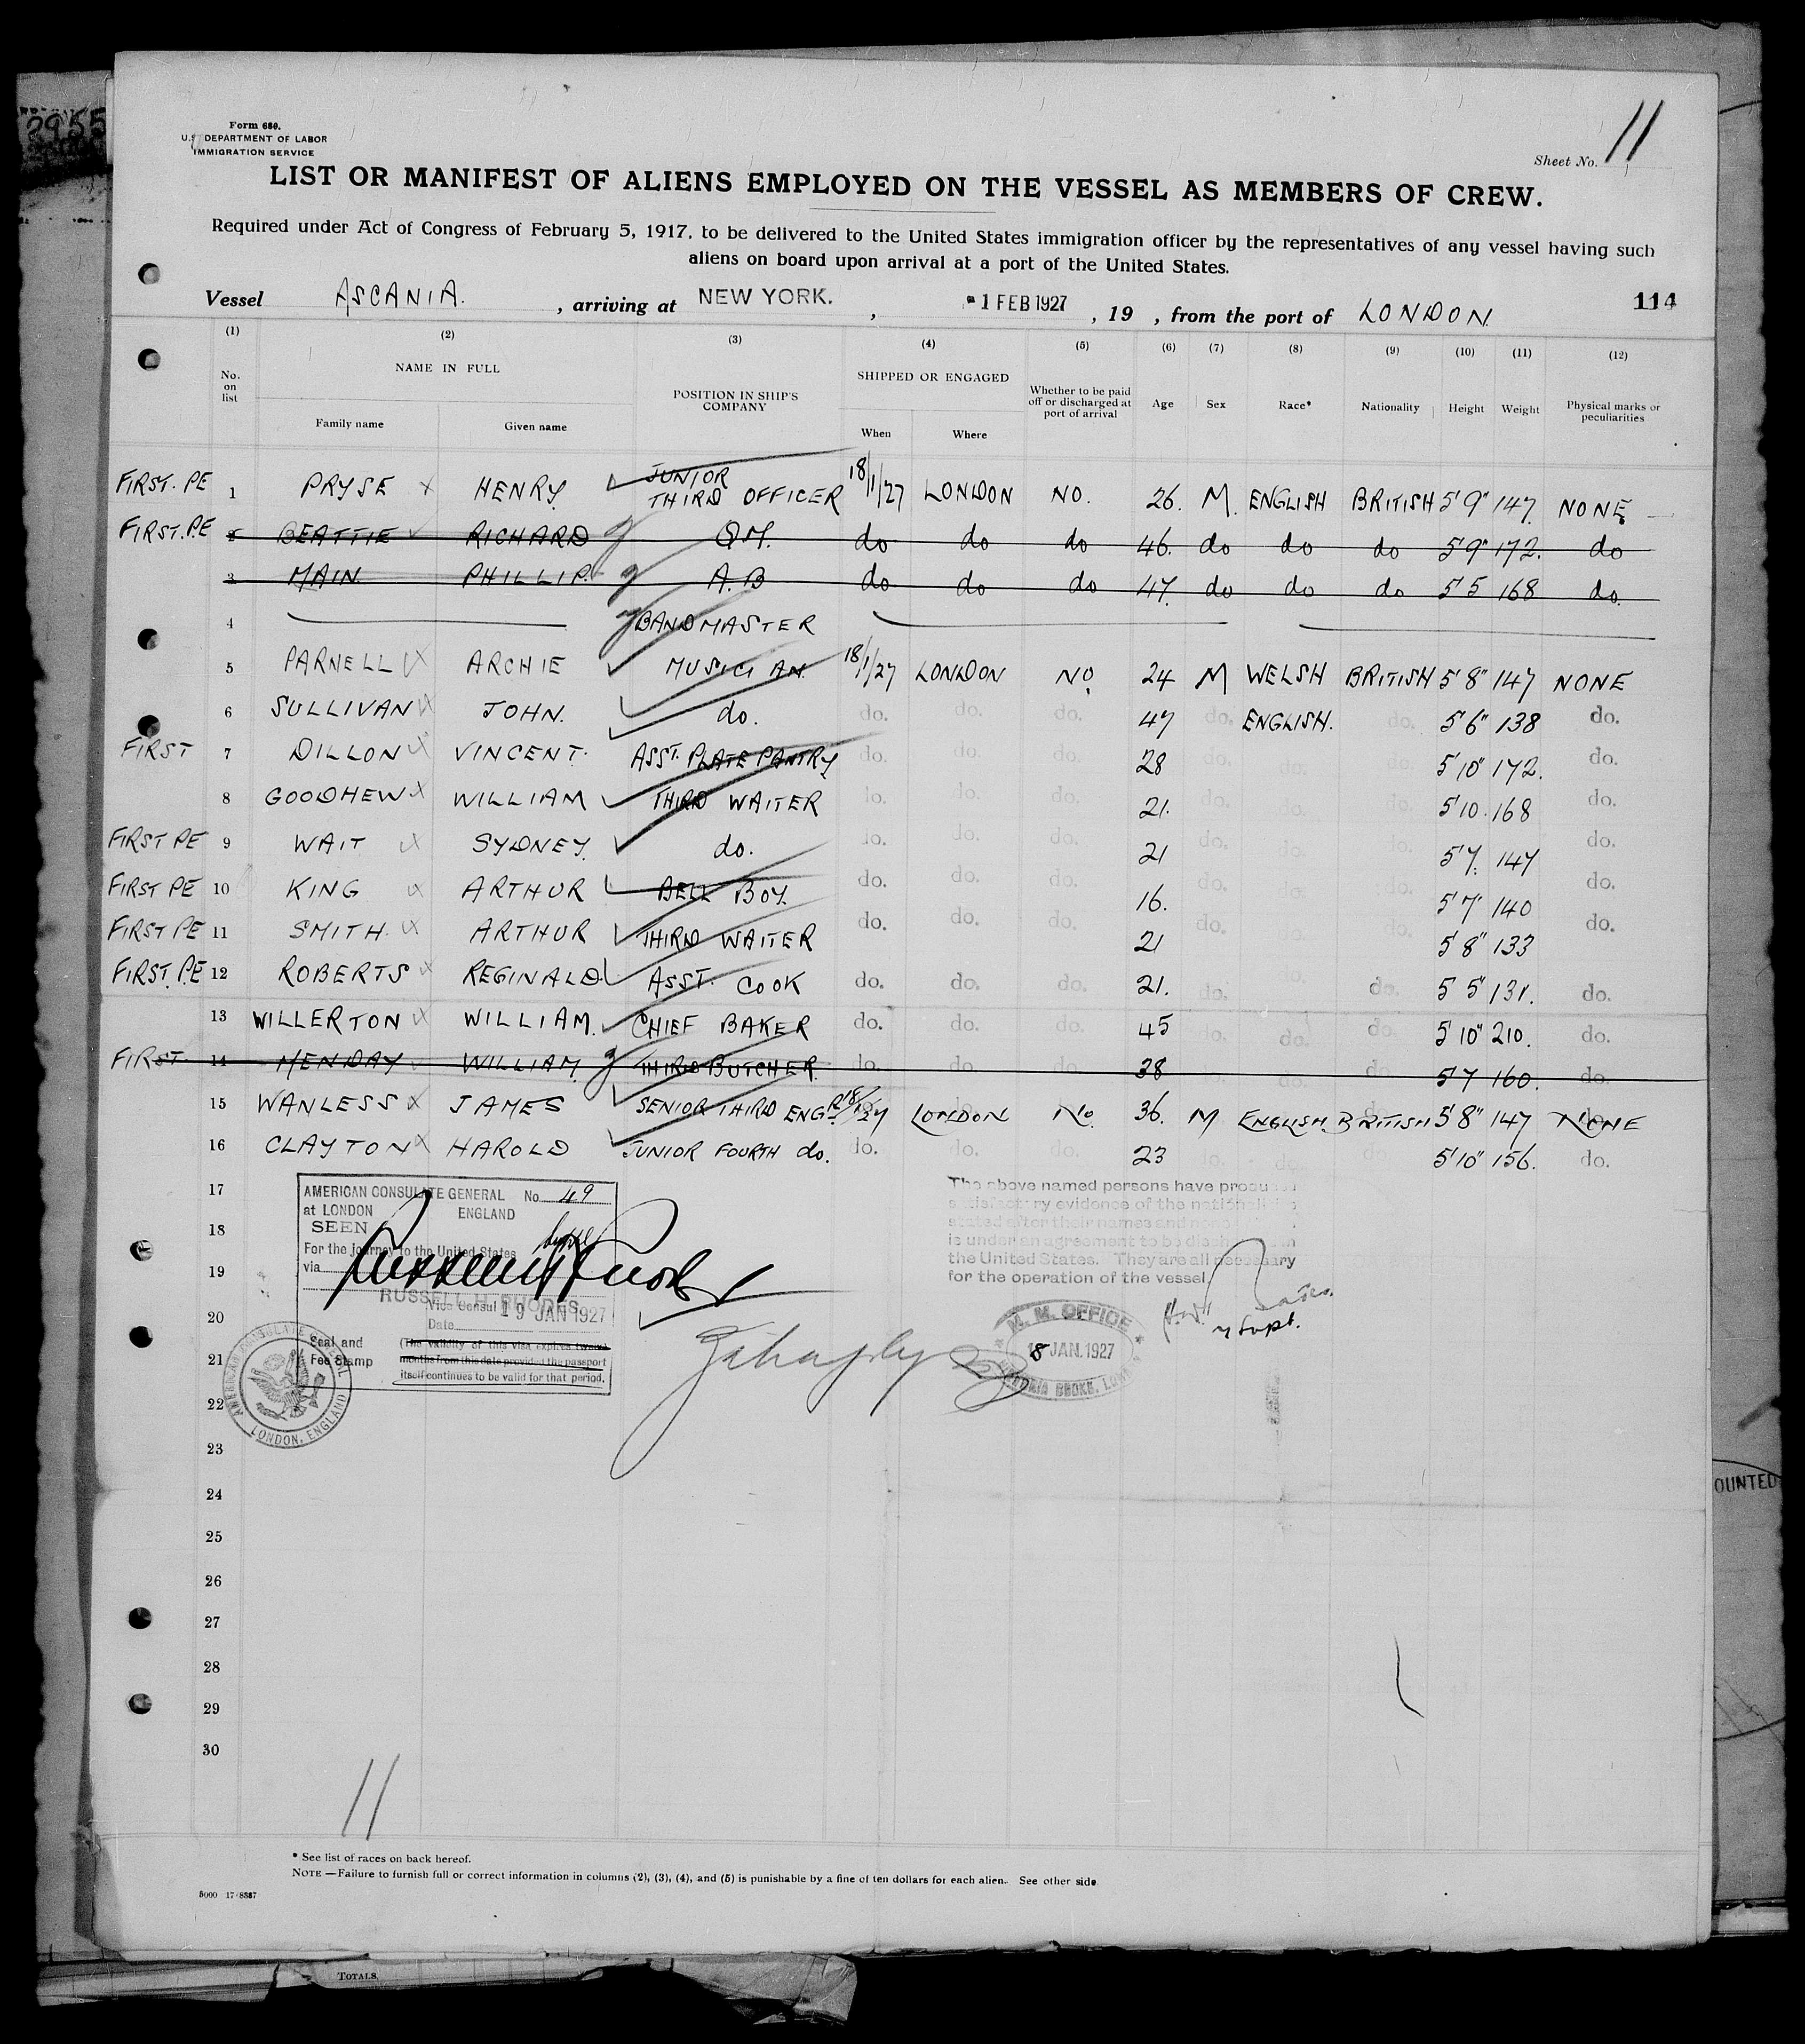 2955
Form 689.
U.S. DEPARTMENT OF LABOR
IMMIGRATION SERVICE
Sheet No. 11
LIST OR MANIFEST OF ALIENS EMPLOYED ON THE VESSEL AS MEMBERS OF CREW.
Required under Act of Congress of February 5, 1917, to be delivered to the United States immigration officer by the representatives of any vessel having such
aliens on board upon arrival at a port of the United States.
Vessel ASCANIA. , arriving at NEW YORK. , 1 FEB 1927 , 19 , from the port of LONDON. 114
(1) (2) (3) (4) (5) (6) (7) (8) (9) (10) (11) (12)
No. on list NAME IN FULL Family name Given name POSITION IN SHIP'S COMPANY SHIPPED OR ENGAGED When Where Whether to be paid off or discharged at port of arrival Age Sex Race* Nationality Height Weight Physical marks or peculiarities
FIRST. PE 1 PRYSE HENRY. JUNIOR THIRD OFFICER 18/1/27 LONDON NO. 26. M. ENGLISH BRITISH 5'9" 147. NONE
FIRST. P.E 2 BEATTIE RICHARD Q.M. do do do 46. do do do 5'9" 172. do
3 MAIN. PHILLIP. A.B do do do 47. do do do 5'5 168 do.
4 BANDMASTER
5 PARNELL ARCHIE MUSICIAN. 18/1/27 LONDON NO. 24 M WELSH BRITISH 5'8" 147 NONE
6 SULLIVAN JOHN. do. do. do. do. 47 do. ENGLISH. do. 5'6" 138 do.
FIRST 7 DILLON VINCENT. ASST. PLATE PANTRY do. do. do. 28 do. do. do. 5'10" 172. do.
8 GOODHEW WILLIAM THIRD WAITER do. do. do. 21. do. do. do. 5'10. 168 do.
FIRST PE 9 WAIT SYDNEY. do. do. do. do. 21 do. do. do. 5'7. 147 do.
FIRST PE 10 KING ARTHUR BELL BOY. do. do. do. 16. do. do. do. 5'7" 140 do.
FIRST PE 11 SMITH. ARTHUR THIRD WAITER do. do. do. 21 do. do. do. 5'8" 133 do.
FIRST. P.E 12 ROBERTS REGINALD. ASST. COOK do. do. do. 21. do. do. do. 5'5" 131. do.
13 WILLERTON WILLIAM. CHIEF BAKER do. do. do. 45 do. do. do. 5'10" 210. do.
FIRST 14 MENDAY WILLIAM. THIRD BUTCHER. do. do. do. 38 do. do. 5'7 160. do.
15 WANLESS JAMES SENIOR THIRD ENGR. 18/1/27 LONDON No. 36. M ENGLISH. BRITISH 5'8" 147 NONE
16 CLAYTON HAROLD JUNIOR FOURTH do. do. do. do. 23 do. do. do. 5'10" 156. do.
17
18
19
20
21
22
23
24
25
26
27
28
29
30
AMERICAN CONSULATE GENERAL No. 49
at LONDON ENGLAND
SEEN
For the journey to the United States
via
RUSSELL H. RHODES
Vice Consul 19 JAN 1927
Date
Seal and
Fee Stamp
(The validity of this visa expires twelve
months from this date provided the passport
itself continues to be valid for that period.
AMERICAN CONSULATE GENERAL
LONDON, ENGLAND
The above named persons have produced
satisfactory evidence of the nationalities
stated after their names and none
is under an agreement to be discharged in
the United States. They are all necessary
for the operation of the vessel.
Supt.
M. M. OFFICE
18 JAN. 1927
11
* See list of races on back hereof.
NOTE—Failure to furnish full or correct information in columns (2), (3), (4), and (5) is punishable by a fine of ten dollars for each alien. See other side
OUNTED
TOTALS